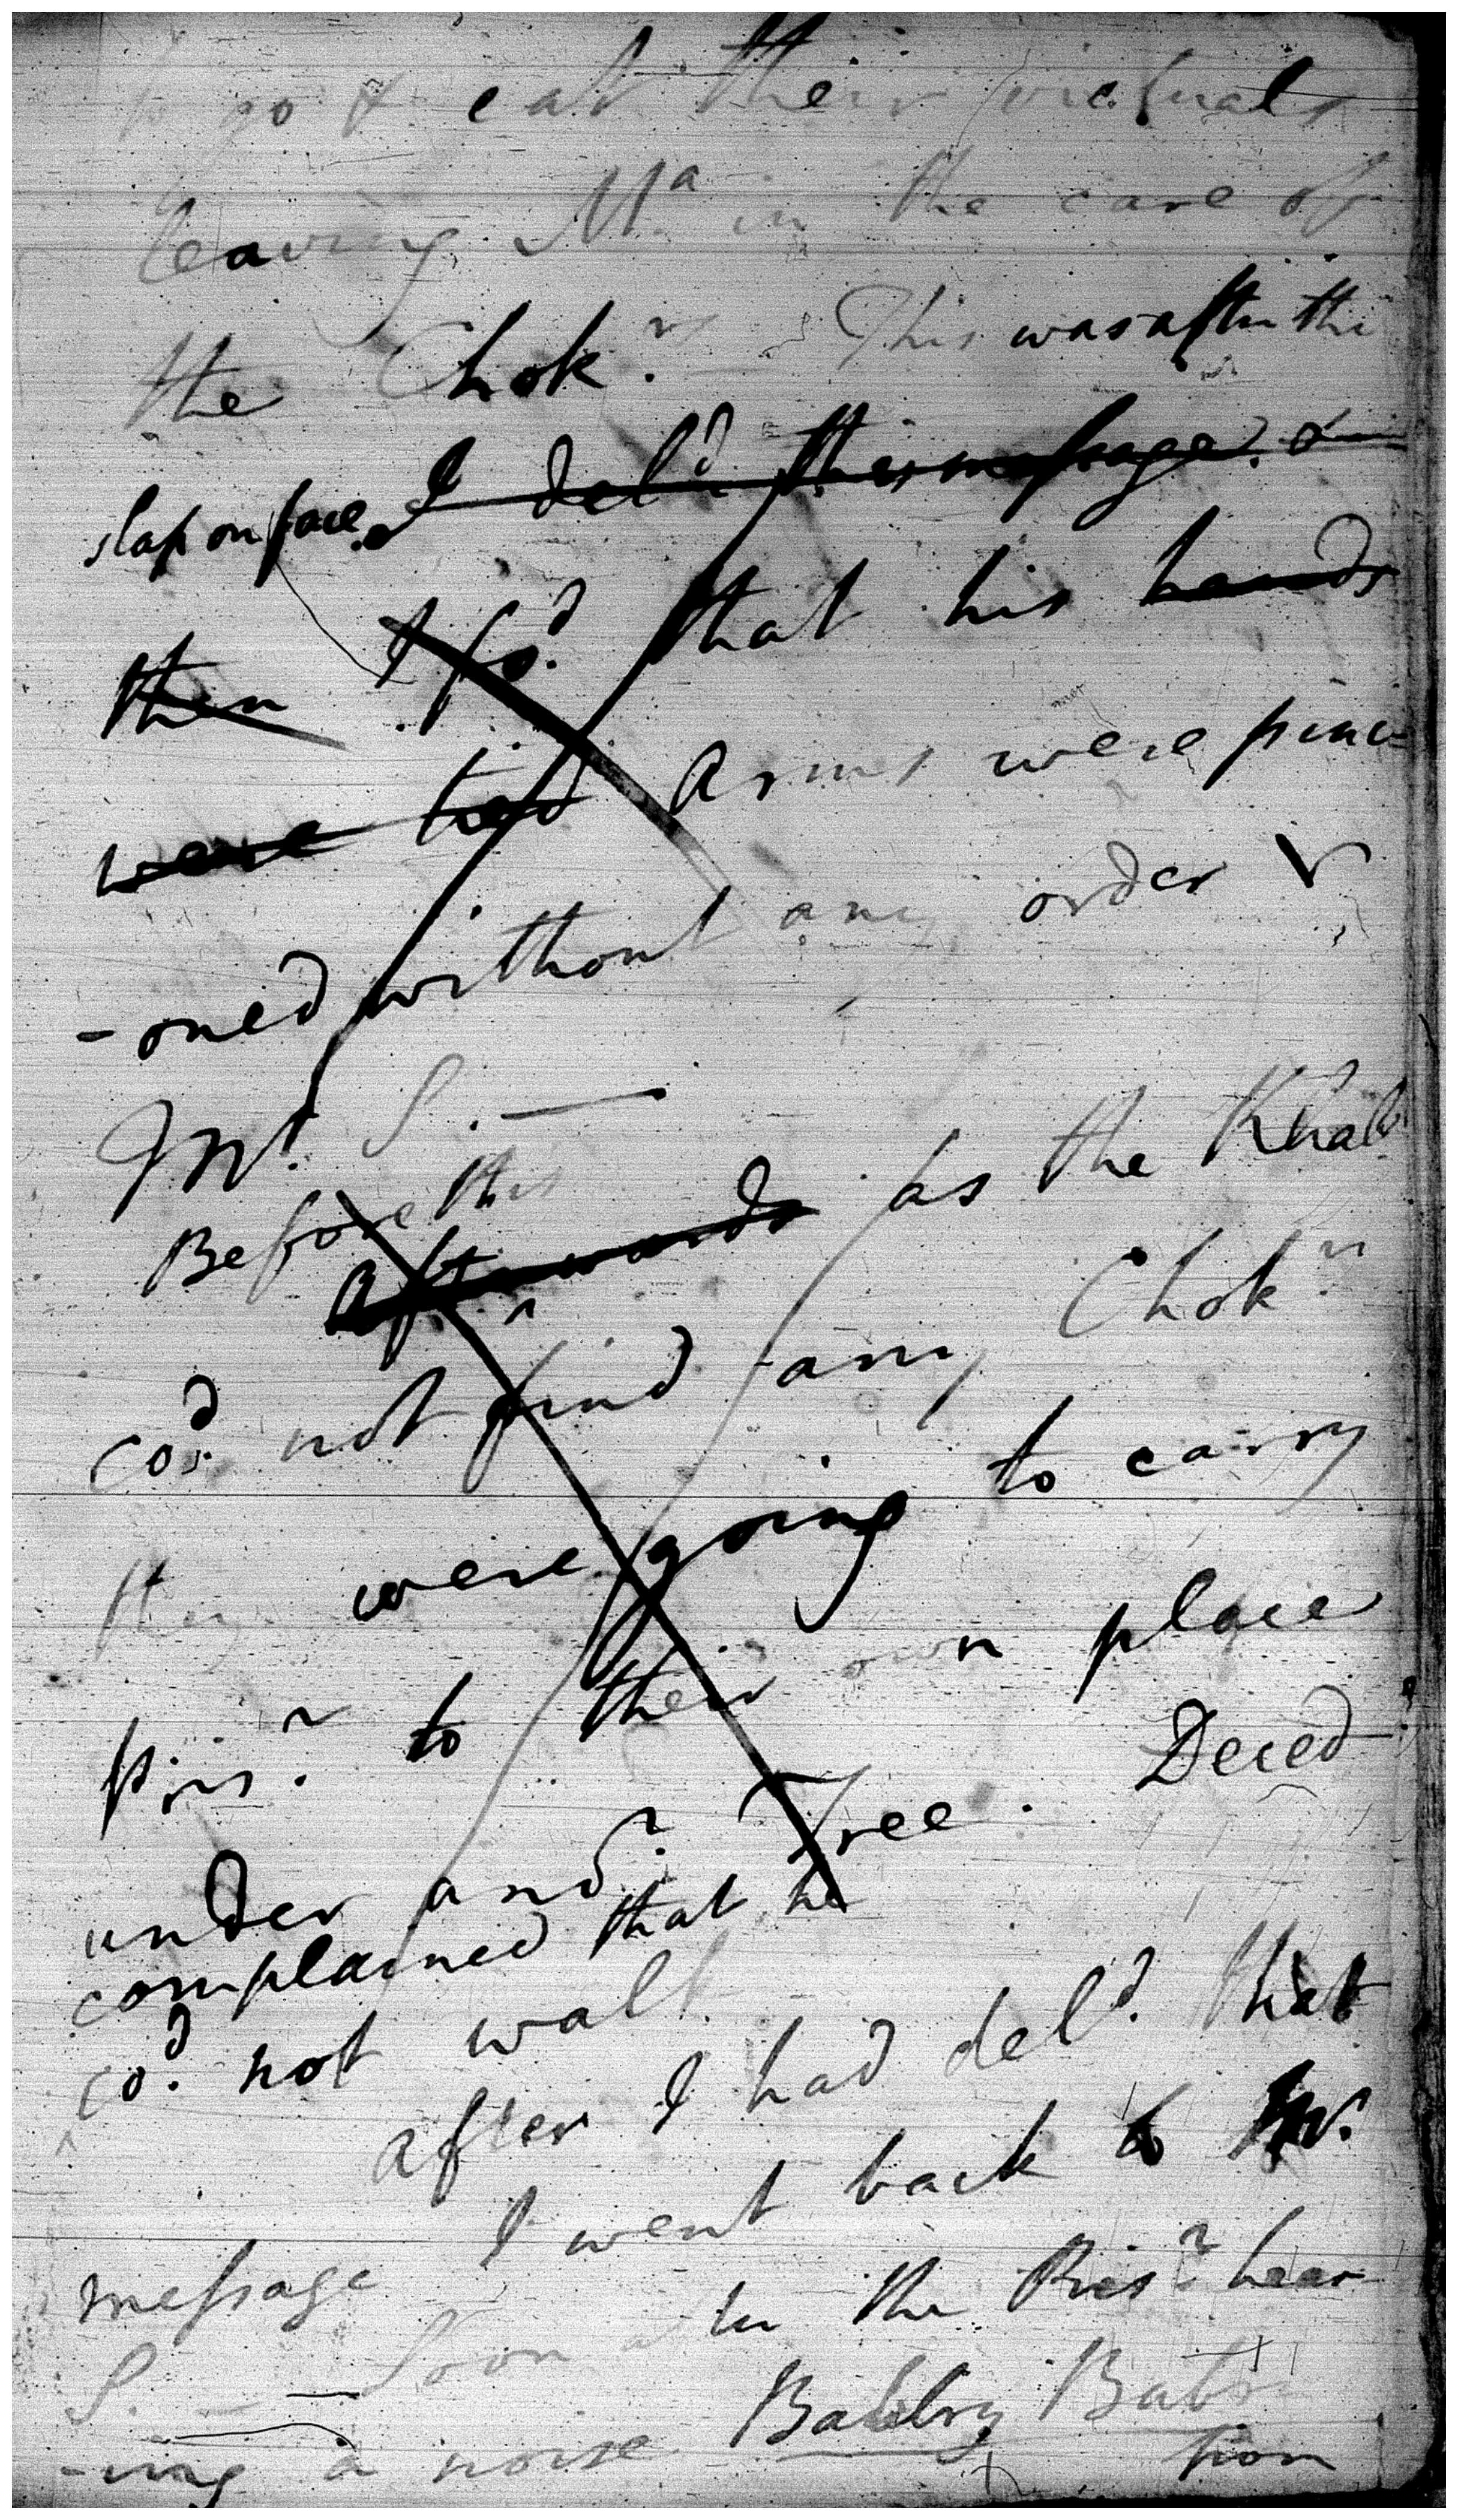 to go & eat their victuals
leaving Ma. in the care of
the Chokrs. This was after the
slap on face. I deld. this message. &
then I fod. that his hands
were tied arms were pinei=
-oned without any order
Mr. S. —
Before this
Afterwards as the Khal
cod. not find any Chokrs.
they were going to carry
Prisr. to their own place
under anor. Tree. Deced.
complained that he
cod. not walk
after I had deld. that
message I went back to Mr.
S. — Soon after the Prisr. hear
-ing a noise Bahby Bab
from